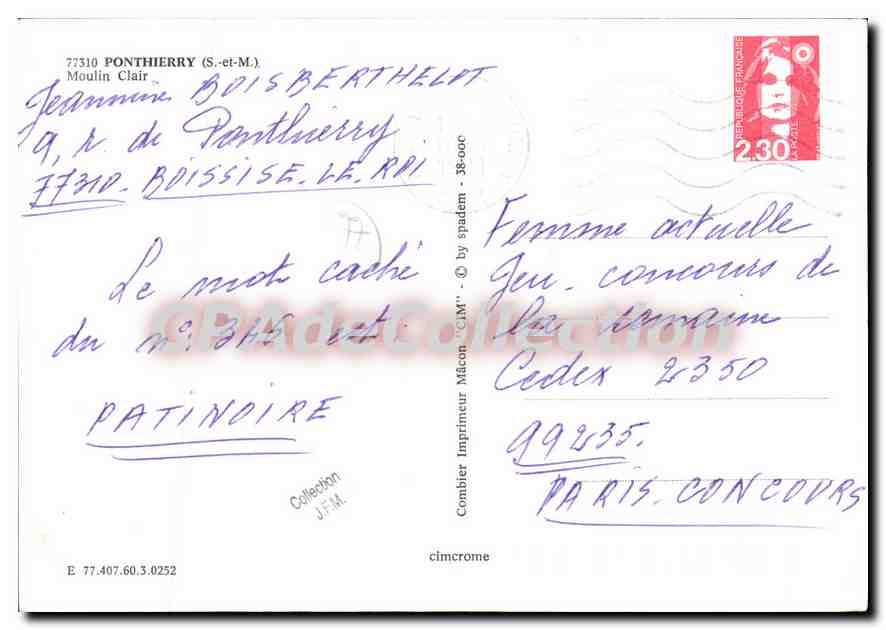 77310 PONTHIERRY (S.-et-M.)
Moulin Clair
Jeannine BOISBERTHELOT
9, r. de Ponthierry
77310. BOISSISE. LE. ROI
Le mot caché
du n°. 345 est :
PATINOIRE
Collection
J.F.M.
E 77.407.60.3.0252
Combier Imprimeur Mâcon "CIM" - © by spadem - 38-000
cimcrome
REPUBLIQUE FRANÇAISE
2.30
LA POSTE
Femme actuelle
Jeu. concours de
la semaine
Cedex 2350
99235.
PARIS. CONCOURS
CPAdeCollection